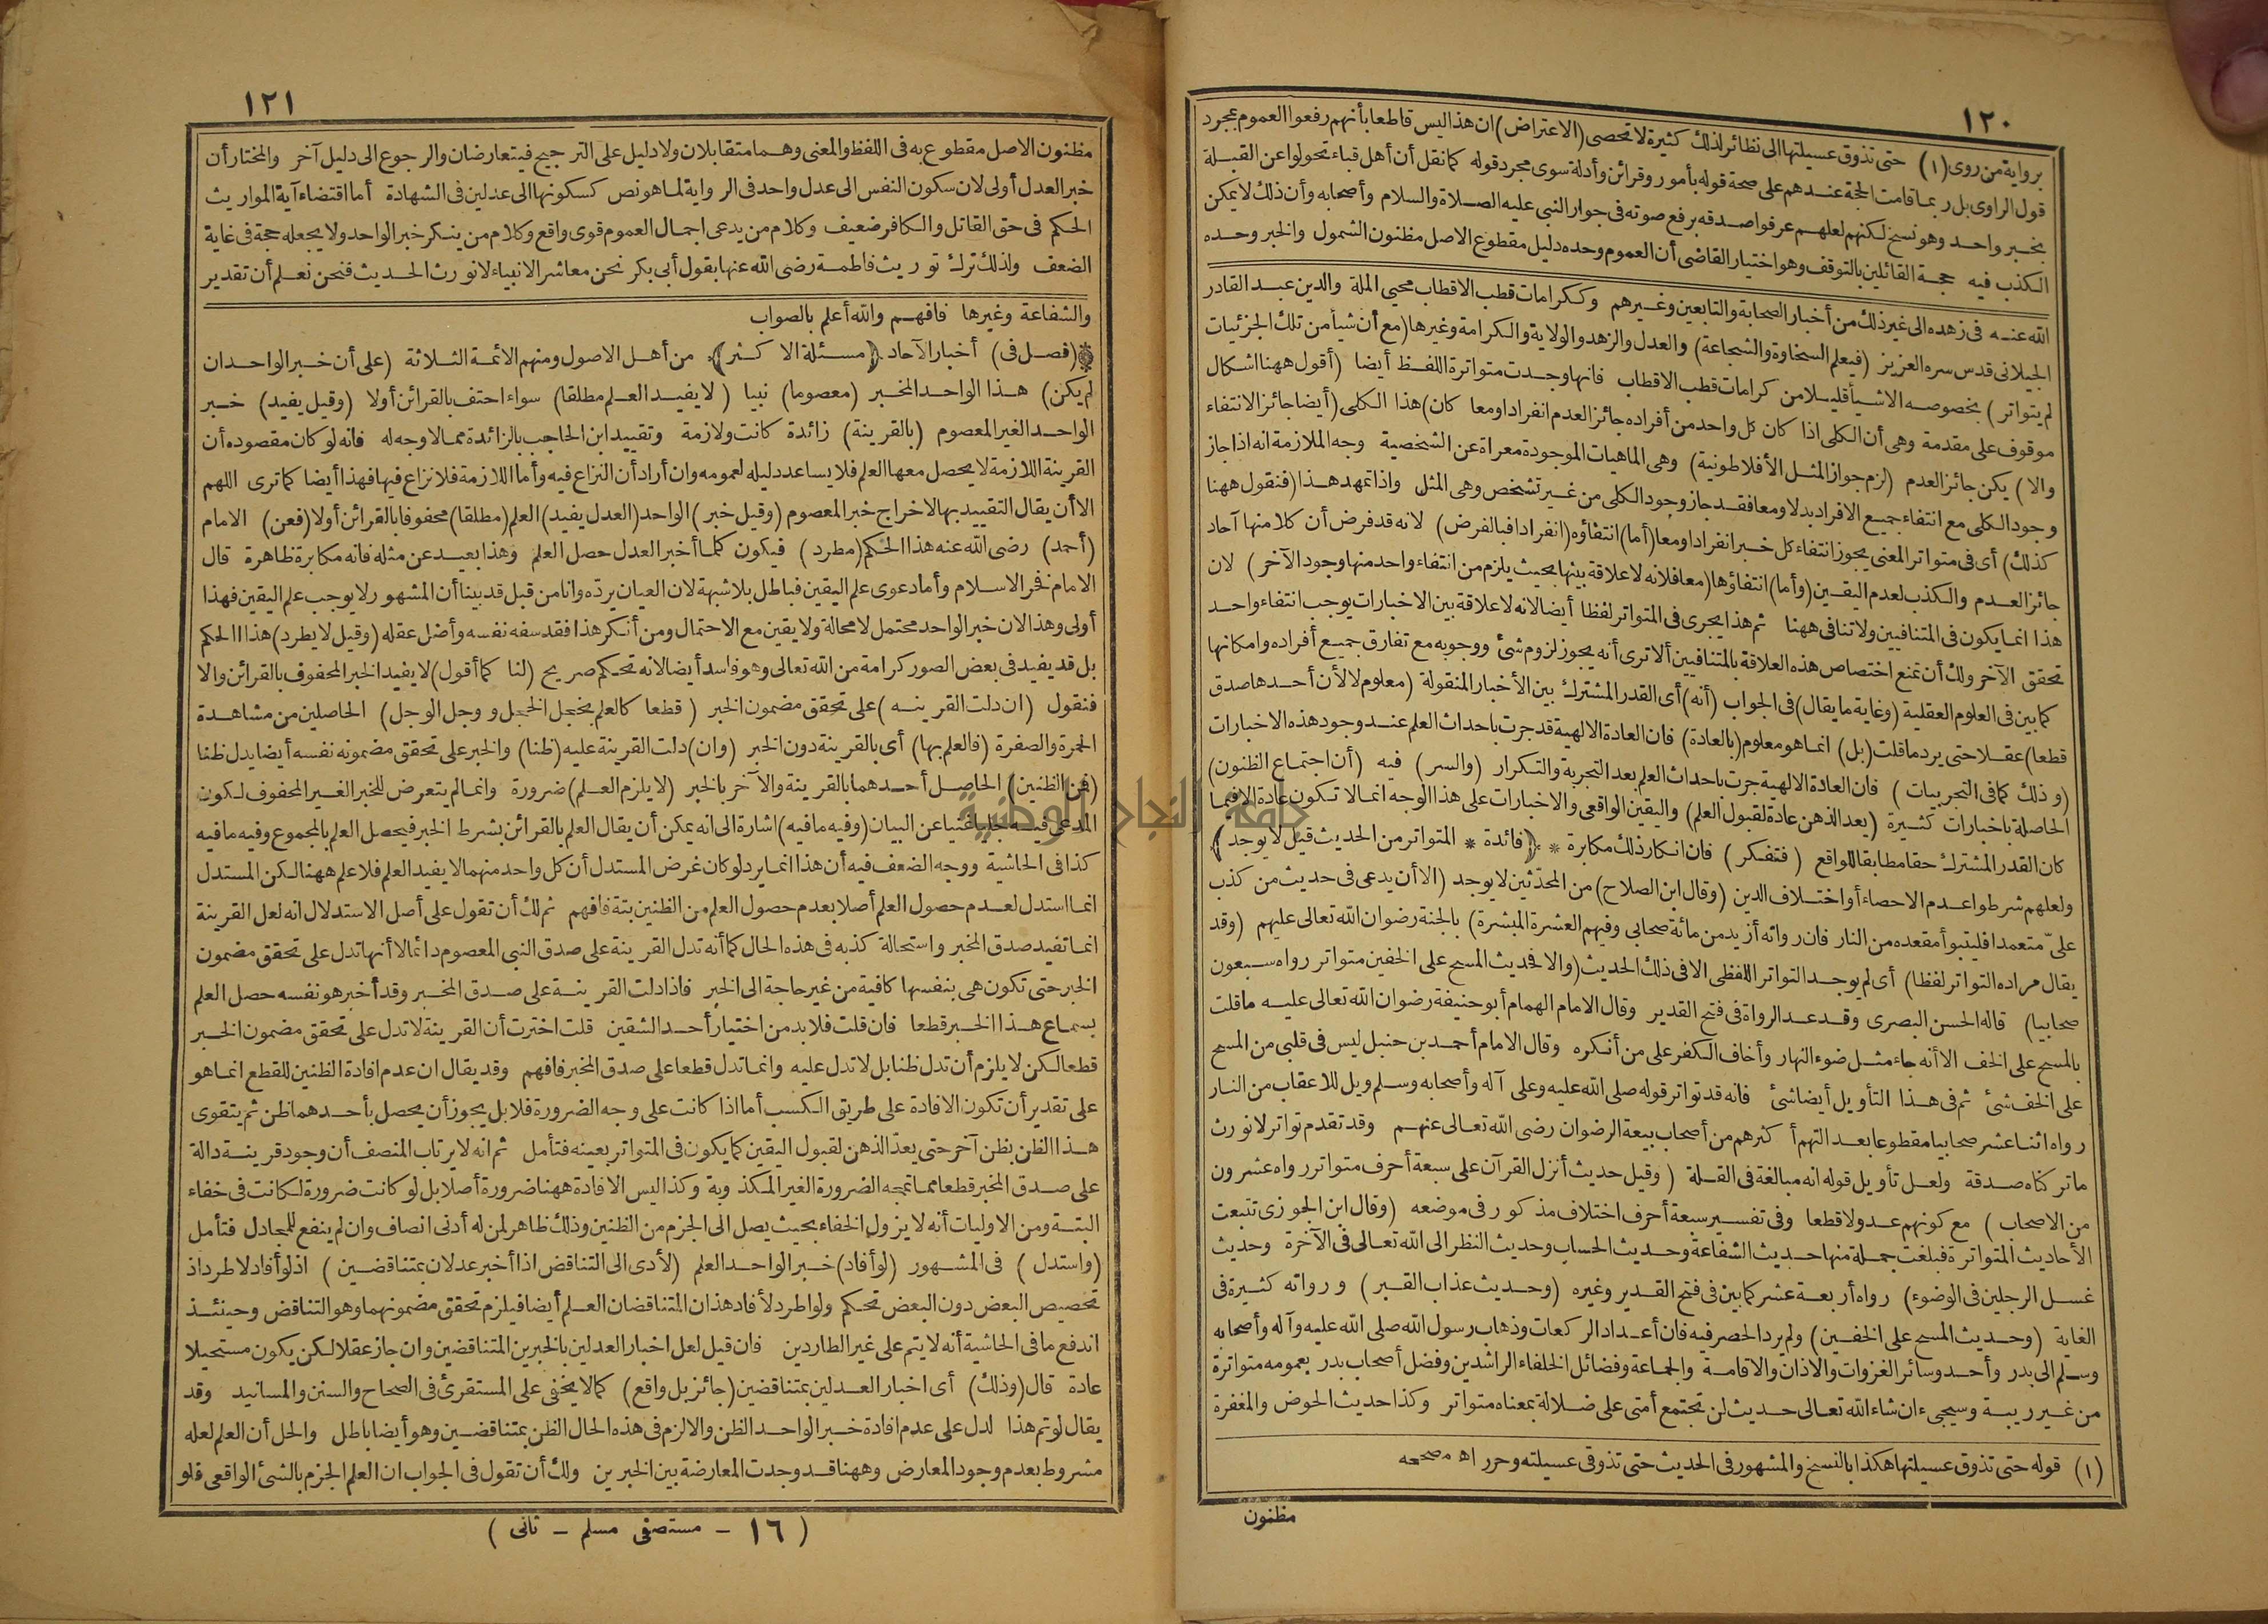 ١٢٠
برواية من روى (١) حتى تذوق عسيلتها الى نظائر لذلك كثيرة لا تحصى (الاعتراض) ان هذا ليس قاطعا بأنهم رفعوا العموم بمجرد
قول الراوى بل ربما قامت الحجة عندهم على صحة قوله بأمور وقرائن وأدلة سوى مجرد قوله كما نقل أن أهل قباء تحولوا عن القبلة
بخبر واحد وهو نسخ لكنهم لعلهم عرفوا صدقه برفع صوته فى جوار النبى عليه الصلاة والسلام وأصحابه وأن ذلك لا يمكن
الكذب فيه حجة القائلين بالتوقف وهو اختيار القاضى أن العموم وحده دليل مقطوع الاصل مظنون الشمول والخبر وحده
الله عنه فى زهده الى غير ذلك من أخبار الصحابة والتابعين وغيرهم وككرامات قطب الاقطاب محيي الملة والدين عبد القادر
الجيلانى قدس سره العزيز (فيعلم السخاوة والشجاعة) والعدل والزهد والولاية والكرامة وغيرها (مع أن شيأ من تلك الجزئيات
لم يتواتر) بخصوصه الا شيأ قليلا من كرامات قطب الاقطاب فانها وجدت متواترة اللفظ أيضا (أقول ههنا اشكال
موقوف على مقدمة وهى أن الكلى اذا كان كل واحد من أفراده جائز العدم انفرادا ومعا كان) هذا الكلى (أيضا جائز الانتفاء
والا) يكن جائز العدم (لزم جواز المثل الأفلاطونية) وهى الماهيات الموجودة معراة عن الشخصية وجه الملازمة انه اذا جاز
وجود الكلى مع انتفاء جميع الافراد بدلا ومعا فقد جاز وجود الكلى من غير تشخص وهى المثل واذا تمهد هذا (فنقول ههنا
كذلك) أى فى متواتر المعنى يجوز انتفاء كل خبر انفرادا ومعا (أما) انتفاؤه (انفرادا فبالفرض) لانه قد فرض أن كلا منها آحاد
جائز العدم والكذب لعدم اليقين (وأما) انتفاؤها (معا فلانه لا علاقة بينها بحيث يلزم من انتفاء واحد منها وجود الآخر) لان
هذا انما يكون فى المتنافيين ولا تنافى ههنا ثم هذا يجرى فى المتواتر لفظا أيضا لانه لا علاقة بين الاخبارات يوجب انتفاء واحد
تحقق الآخر ولك أن تمنع اختصاص هذه العلاقة بالمتنافيين ألا ترى أنه يجوز لزوم شئ ووجوبه مع تفارق جميع أفراده وامكانها
كما بين فى العلوم العقلية (وغاية ما يقال) فى الجواب (أنه) أى القدر المشترك بين الأخبار المنقولة (معلوم لا لأن أحدها صدق
قطعا) عقلا حتى يرد ما قلت (بل) انما هو معلوم (بالعادة) فان العادة الالهية قد جرت باحداث العلم عند وجود هذه الاخبارات
(وذلك كما فى التجربيات) فان العادة الالهية جرت باحداث العلم بعد التجربة والتكرار (والسر) فيه (أن اجتماع الظنون)
الحاصلة باخبارات كثيرة (يعد الذهن عادة لقبول العلم) واليقين الواقعى والاخبارات على هذا الوجه انما لا تكون عادة الا فيما
كان القدر المشترك حقا مطابقا للواقع (فتفكر) فان انكار ذلك مكابرة * (فائدة * المتواتر من الحديث قيل لا يوجد)
ولعلهم شرطوا عدم الاحصاء أو اختلاف الدين (وقال ابن الصلاح) من المحدّثين لا يوجد (الا أن يدعى فى حديث من كذب
علىّ متعمدا فليتبوأ مقعده من النار فان رواته أزيد من مائة صحابى وفيهم العشرة المبشرة) بالجنة رضوان الله تعالى عليهم (وقد
يقال مراده التواتر لفظا) أى لم يوجد التواتر اللفظى الا فى ذلك الحديث (والا فحديث المسح على الخفين متواتر رواه سبعون
صحابيا) قاله الحسن البصرى وقد عد الرواة فى فتح القدير وقال الامام الهمام أبو حنيفة رضوان الله تعالى عليه ما قلت
بالمسح على الخف الا أنه جاء مثل ضوء النهار وأخاف الكفر على من أنكره وقال الامام أحمد بن حنبل ليس فى قلبى من المسح
على الخف شئ ثم فى هذا التأويل أيضا شئ فانه قد تواتر قوله صلى الله عليه وعلى آله وأصحابه وسلم ويل للاعقاب من النار
رواه اثنا عشر صحابيا مقطوعا بعدالتهم أكثرهم من أصحاب بيعة الرضوان رضى الله تعالى عنهم وقد تقدم تواتر لا نورث
ما تركناه صدقة ولعل تأويل قوله انه مبالغة فى القلة (وقيل حديث أنزل القرآن على سبعة أحرف متواتر رواه عشرون
من الاصحاب) مع كونهم عدولا قطعا وفى تفسير سبعة أحرف اختلاف مذكور فى موضعه (وقال ابن الجوزى تتبعت
الأحاديث المتواترة فبلغت جملة منها حديث الشفاعة وحديث الحساب وحديث النظر الى الله تعالى فى الآخرة وحديث
غسل الرجلين فى الوضوء) رواه أربعة عشر كما بين فى فتح القدير وغيره (وحديث عذاب القبر) ورواته كثيرة فى
الغاية (وحديث المسح على الخفين) ولم يرد الحصر فيه فان أعداد الركعات وذهاب رسول الله صلى الله عليه وآله وأصحابه
وسلم الى بدر وأحد وسائر الغزوات والاذان والاقامة والجماعة وفضائل الخلفاء الراشدين وفضل أصحاب بدر بعمومه متواترة
من غير ريبة وسيجىء ان شاء الله تعالى حديث لن تجتمع أمتى على ضلالة بمعناه متواتر وكذا حديث الحوض والمغفرة
(١) قوله حتى تذوق عسيلتها هكذا بالنسخ والمشهور فى الحديث حتى تذوقى عسيلته وحرر اه مصححه
مظنون
١٢١
مظنون الاصل مقطوع به فى اللفظ والمعنى وهما متقابلان ولا دليل على الترجيح فيتعارضان والرجوع الى دليل آخر والمختار أن
خبر العدل أولى لان سكون النفس الى عدل واحد فى الرواية لما هو نص كسكونها الى عدلين فى الشهادة أما اقتضاء آية المواريث
الحكم فى حق القاتل والكافر ضعيف وكلام من يدعى اجمال العموم قوى واقع وكلام من ينكر خبر الواحد ولا يجعله حجة فى غاية
الضعف ولذلك ترك توريث فاطمة رضى الله عنها بقول أبى بكر نحن معاشر الانبياء لا نورث الحديث فنحن نعلم أن تقدير
والشفاعة وغيرها فافهم والله أعلم بالصواب
(فصل فى) أخبار الآحاد (مسئلة الاكثر) من أهل الاصول ومنهم الائمة الثلاثة (على أن خبر الواحد ان
لم يكن) هذا الواحد المخبر (معصوما) نبيا (لا يفيد العلم مطلقا) سواء احتف بالقرائن أولا (وقيل يفيد) خبر
الواحد الغير المعصوم (بالقرينة) زائدة كانت ولازمة وتقييد ابن الحاجب بالزائدة مما لا وجه له فانه لو كان مقصوده أن
القرينة اللازمة لا يحصل معها العلم فلا يساعد دليله لعمومه وان أراد أن النزاع فيه وأما اللازمة فلا نزاع فيها فهذا أيضا كما ترى اللهم
الا أن يقال التقييد بها لاخراج خبر المعصوم (وقيل خبر) الواحد (العدل يفيد) العلم (مطلقا) محفوفا بالقرائن أولا (فعن) الامام
(أحمد) رضى الله عنه هذا الحكم (مطرد) فيكون كلما أخبر العدل حصل العلم وهذا بعيد عن مثله فانه مكابرة ظاهرة قال
الامام فخر الاسلام وأما دعوى علم اليقين فباطل بلا شبهة لان العيان يردّه وانا من قبل قد بينا أن المشهور لا يوجب علم اليقين فهذا
أولى وهذا لان خبر الواحد محتمل لا محالة ولا يقين مع الاحتمال ومن أنكر هذا فقد سفه نفسه وأضل عقله (وقيل لا يطرد) هذا الحكم
بل قد يفيد فى بعض الصور كرامة من الله تعالى وهو فاسد أيضا لانه تحكم صريح (لنا كما أقول) لا يفيد الخبر المحفوف بالقرائن والا
فنقول (ان دلت القرينة) على تحقق مضمون الخبر (قطعا كالعلم بخجل الخجل ووجل الوجل) الحاصلين من مشاهدة
الحمرة والصفرة (فالعلم بها) أى بالقرينة دون الخبر (وان) دلت القرينة عليه (ظنا) والخبر على تحقق مضمونه نفسه أيضا يدل ظنا
(فمن الظنين) الحاصل أحدهما بالقرينة والآخر بالخبر (لا يلزم العلم) ضرورة وانما لم يتعرض للخبر الغير المحفوف لكون
المدعى فيه جليا غنيا عن البيان (وفيه ما فيه) اشارة الى انه يمكن أن يقال العلم بالقرائن بشرط الخبر فيحصل العلم بالمجموع وفيه ما فيه
كذا فى الحاشية ووجه الضعف فيه أن هذا انما يرد لو كان غرض المستدل أن كل واحد منهما لا يفيد العلم فلا علم ههنا لكن المستدل
انما استدل لعدم حصول العلم أصلا بعدم حصول العلم من الظنين بتة فافهم ثم لك أن تقول على أصل الاستدلال انه لعل القرينة
انما تفيد صدق المخبر واستحالة كذبه فى هذه الحال كما أنه تدل القرينة على صدق النبى المعصوم دائما لا أنها تدل على تحقق مضمون
الخبر حتى تكون هى بنفسها كافية من غير حاجة الى الخبر فاذا دلت القرينة على صدق المخبر وقد أخبر هو نفسه حصل العلم
بسماع هذا الخبر قطعا فان قلت فلا بد من اختيار أحد الشقين قلت اخترت أن القرينة لا تدل على تحقق مضمون الخبر
قطعا لكن لا يلزم أن تدل ظنا بل لا تدل عليه وانما تدل قطعا على صدق المخبر فافهم وقد يقال ان عدم افادة الظنين للقطع انما هو
على تقدير أن تكون الافادة على طريق الكسب أما اذا كانت على وجه الضرورة فلا بل يجوز أن يحصل بأحدهما ظن ثم يتقوى
هذا الظن بظن آخر حتى يعدّ الذهن لقبول اليقين كما يكون فى المتواتر بعينه فتأمل ثم انه لا يرتاب المنصف أن وجود قرينة دالة
على صدق المخبر قطعا مما تمجه الضرورة الغير المكذوبة وكذا ليس الافادة ههنا ضرورة أصلا بل لو كانت ضرورة لكانت فى خفاء
البتة ومن الاوليات أنه لا يزول الخفاء بحيث يصل الى الجزم من الظنين وذلك ظاهر لمن له أدنى انصاف وان لم ينفع للمجادل فتأمل
(واستدل) فى المشهور (لو أفاد) خبر الواحد العلم (لأدى الى التناقض اذا أخبر عدلان بمتناقضين) اذ لو أفاد لاطرد اذ
تخصيص البعض دون البعض تحكم ولو اطرد لأفاد هذان المتناقضان العلم أيضا فيلزم تحقق مضمونهما وهو التناقض وحينئذ
اندفع ما فى الحاشية أنه لا يتم على غير الطاردين فان قيل لعل اخبار العدلين بالخبرين المتناقضين وان جاز عقلا لكن يكون مستحيلا
عادة قال (وذلك) أى اخبار العدلين بمتناقضين (جائز بل واقع) كما لا يخفى على المستقرئ فى الصحاح والسنن والمسانيد وقد
يقال لو تم هذا لدل على عدم افادة خبر الواحد الظن والا لزم فى هذه الحال الظن بمتناقضين وهو أيضا باطل والحل أن العلم لعله
مشروط بعدم وجود المعارض وههنا قد وجدت المعارضة بين الخبرين ولك أن تقول فى الجواب ان العلم الجزم بالشئ الواقعى فلو
(١٦ - مستصفى مسلم - ثانى)
جامعة النجاح الوطنية